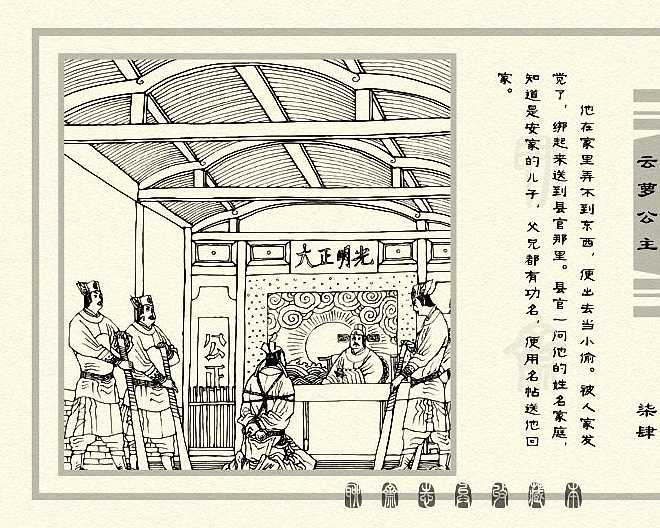 他在家里弄不到东西，便出去当小偷。被人家发
觉了，绑起来送到县官那里。县官一问他的姓名家庭，
知道是安家的儿子，父兄都有功名，便用名帖送他回
家。
云萝公主
柒肆
光明正大
公正
聊斋志异收藏本